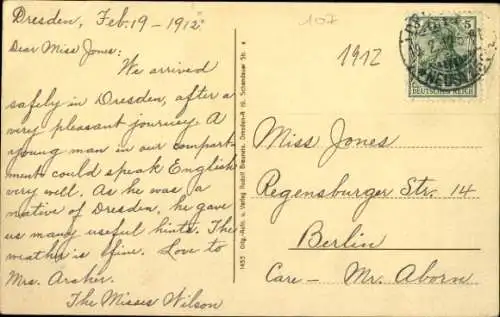 Dresden, Feb. 19 - 1912.
Dear Miss Jones:
We arrived
safely in Dresden, after a
very pleasant journey. A
young man in our compart-
ment could speak English
very well. As he was a
native of Dresden, he gave
us many useful hints. The
weather is fine. Love to
Mrs. Archer.
The Misses Wilson
107
1912
5
DEUTSCHES REICH
Miss Jones
Regensburger Str. 14
Berlin
Care - Mr. Aborn
1453 Orig.-Aufn. u. Verlag Rudolf Brauneis, Dresden-A 16, Schandauer Str.